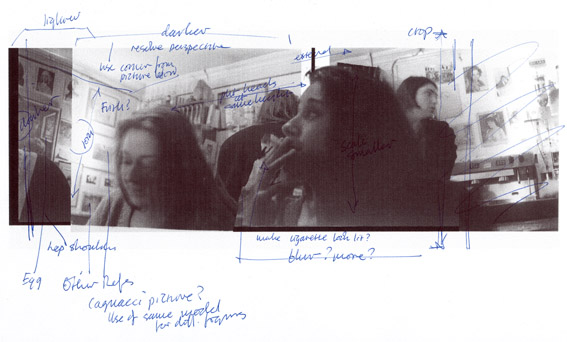 lighter
darker
resolve perspective
use corner from
picture above
extend
crop
put heads
at
same height
Scale
smaller
her shoulder
make cigarette look lit?
blur? more?
Egg
Other Refs
Cagnacci picture?
Use of same model
for diff. figures